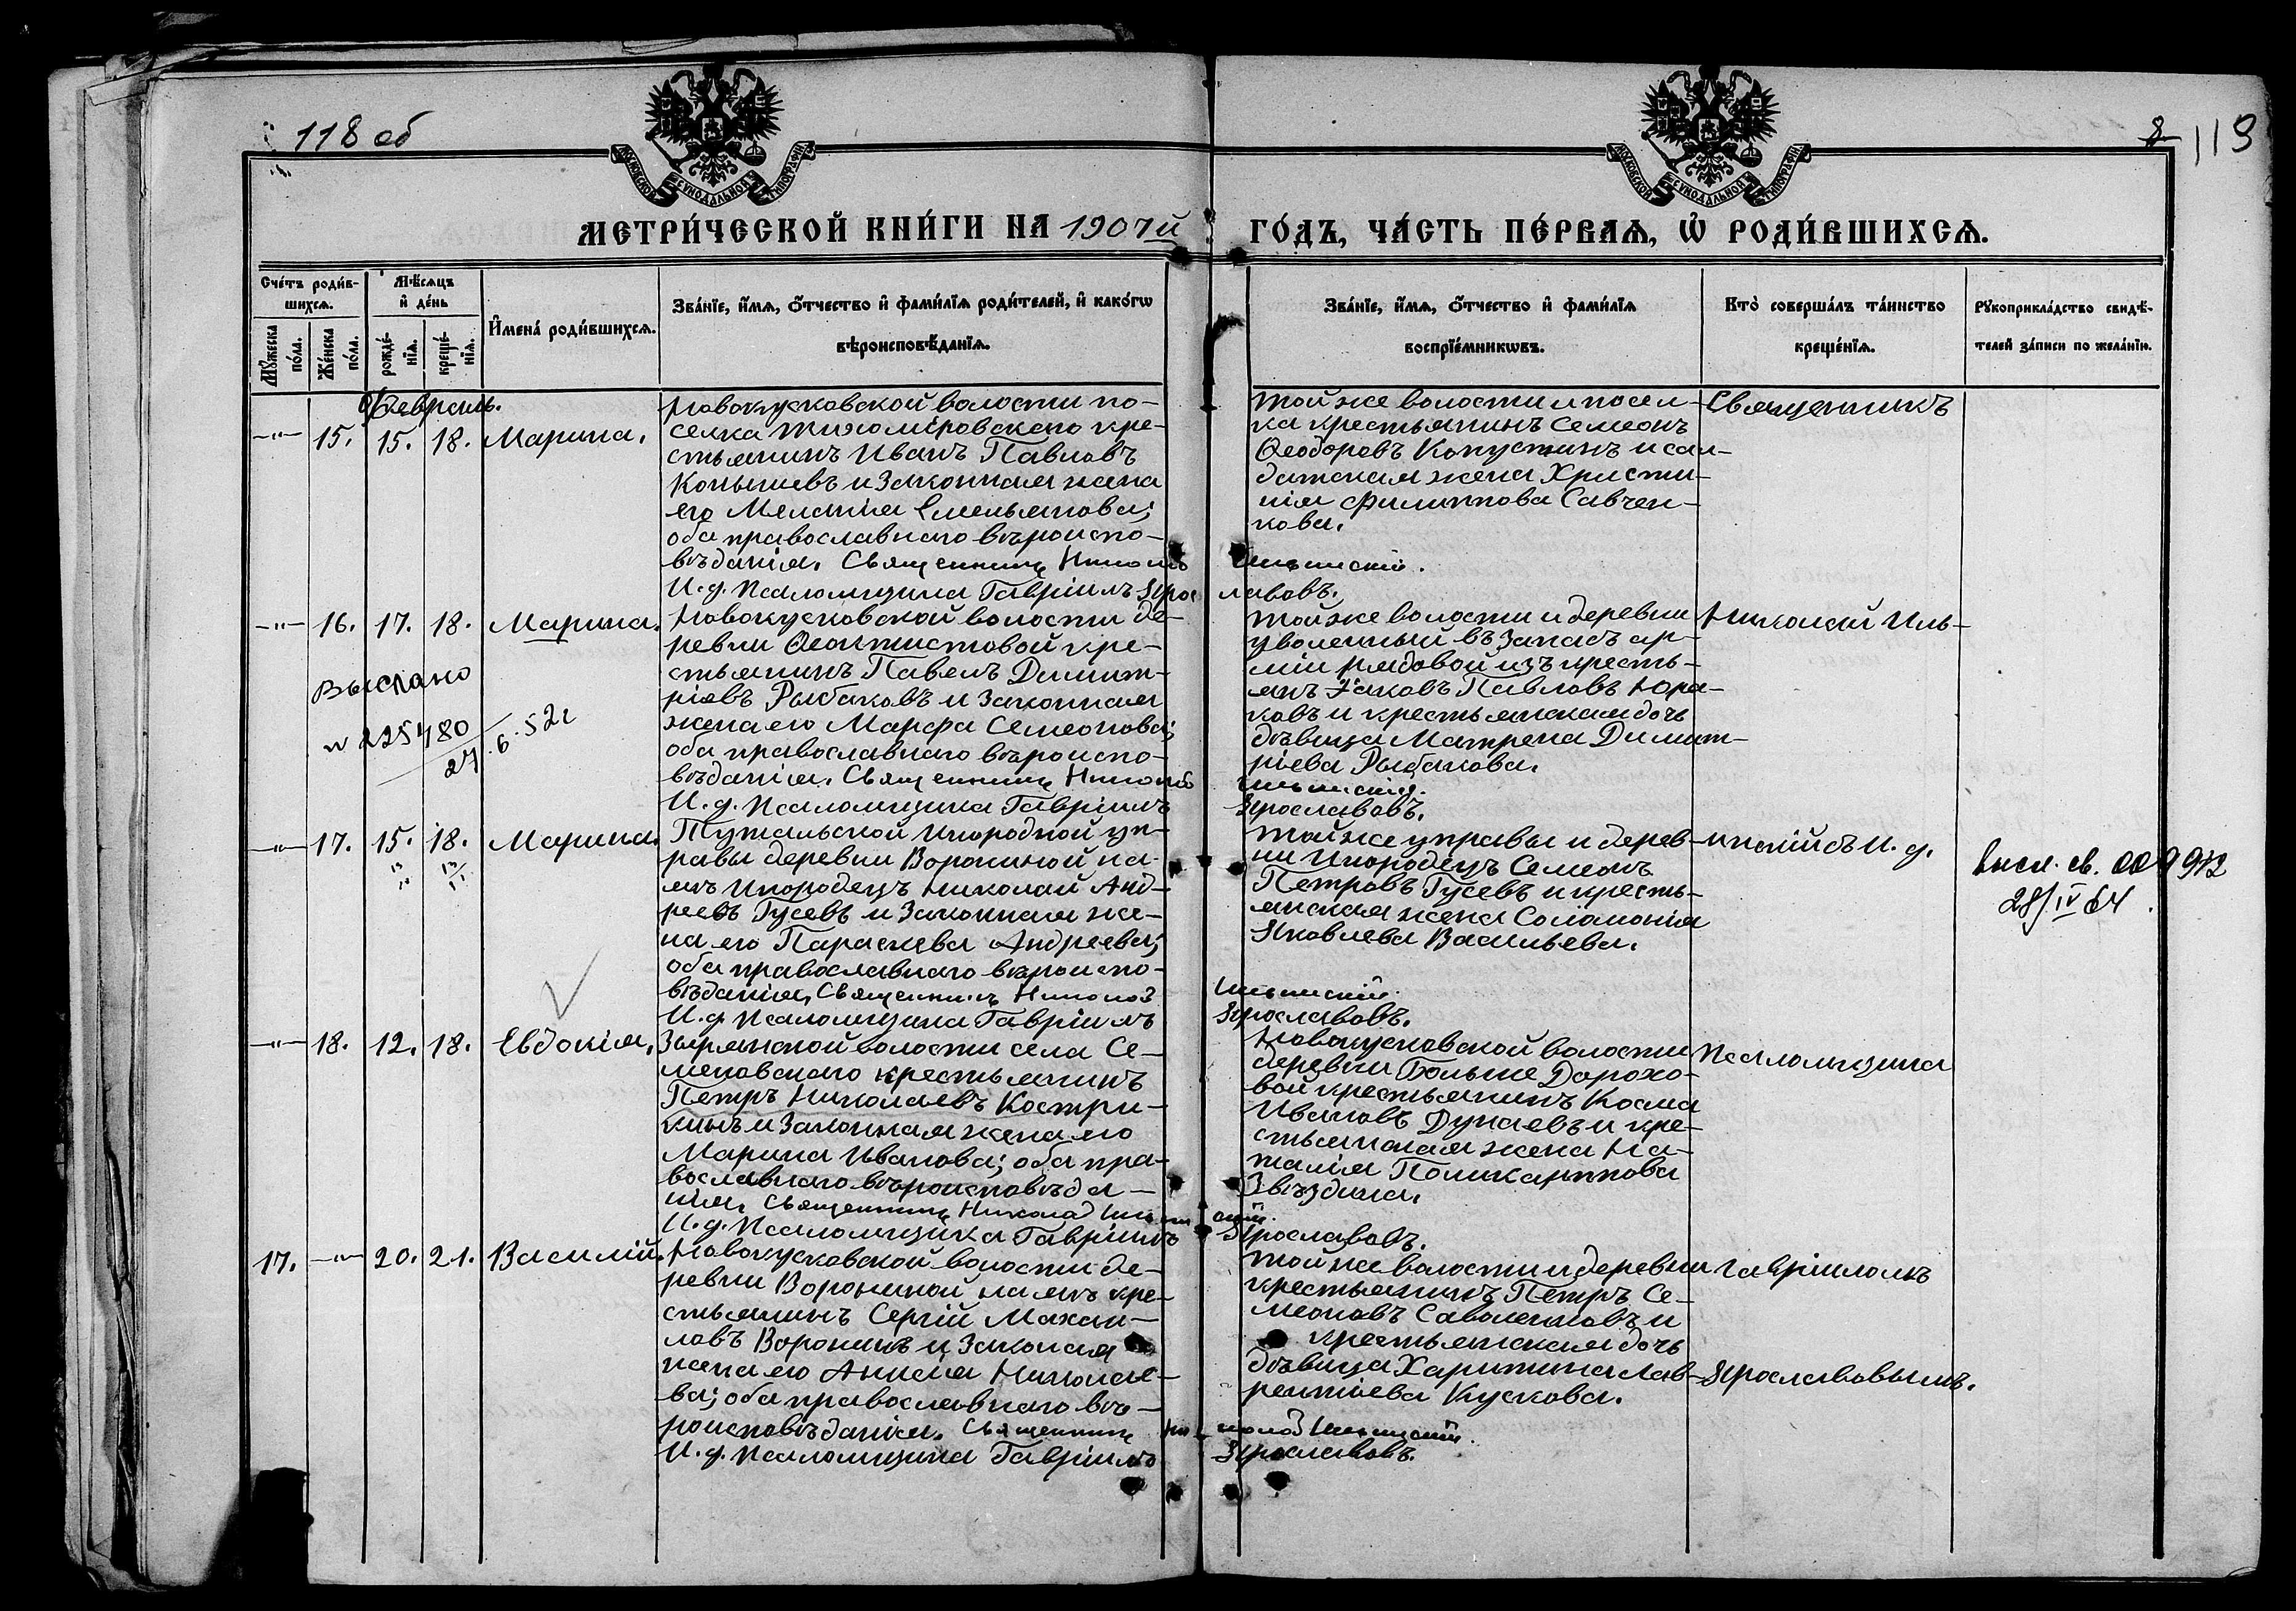 118 об
8 119
МОСКОВСКОЙ СѴНОДАЛЬНОЙ ТИПОГРАФІИ
МОСКОВСКОЙ СѴНОДАЛЬНОЙ ТИПОГРАФІИ
МЕТРИ́ЧЕСКОЙ КНИ́ГИ НА 1907й ГО́ДЪ, ЧА́СТЬ ПЕ́РВАѦ, Ѡ҆ РОДИ́ВШИХСѦ.
Сче́тъ роди́в-
шихсѧ.
Мꙋ́жеска
по́ла.
Же́нска
по́ла.
Мѣ́сѧцъ
и҆ де́нь
рожде́-
нїѧ.
креще́-
нїѧ.
И҆мена́ роди́вшихсѧ.
Зва́нїе, и҆́мѧ, ѻ҆́тчество и҆ фами́лїѧ роди́телей, и҆ како́гѡ
вѣроисповѣ́данїѧ.
Зва́нїе, и҆́мѧ, ѻ҆́тчество и҆ фами́лїѧ
воспрїе́мникѡвъ.
Кто̀ соверша́лъ та́инство
креще́нїѧ.
Рꙋкоприкла́дство свидѣ́-
телей за́писи по жела́нїю.
Февраль.
-"- 15. 15. 18. Марина.
Новокусковской волости по-
селка Тихомировскаго кре-
стьянинъ Иванъ Павловъ
Копышевъ и законная жена
его Меланія Емельянова;
оба православнаго вѣроиспо-
вѣданія. Священникъ Николай Ильинскій.
И.д. псаломщика Гавріилъ Ярославовъ.
тойже волости и посел-
ка крестьянинъ Семеонъ
Ѳеодоровъ Капустинъ и сол-
датская жена Христи-
нія Филиппова Савчен-
кова.
Священникъ
-"- 16. 17. 18. Марина.
Новокусковской волости де-
ревни Ѳеоктистовой кре-
стьянинъ Павелъ Димит-
ріевъ Рыбаковъ и законная
жена его Марфа Семеонова;
оба православнаго вѣроиспо-
вѣданія. Священникъ Николай Ильинскій.
И.д. псаломщика Гавріилъ Ярославовъ.
тойже волости и деревни
уволенный въ запасъ ар-
міи рядовой изъ кресть-
янъ Іаковъ Павловъ Юра-
ковъ и крестьянская дочь
дѣвица Матрена Димит-
ріева Рыбакова.
Николай Иль-
Выслано
N 225480
27.6.52г
-"- 17. 15. 18. Марина.
Тутальской инородной уп-
равы деревни Ворониной па-
шъ инородецъ Николай Анд-
реевъ Гусевъ и законная же-
на его Параскева Андреева;
оба православнаго вѣроиспо-
вѣданія. Священникъ Николай Ильинскій.
И.д. псаломщика Гавріилъ Ярославовъ.
тойже управы и дерев-
ни инородецъ Семеонъ
Петровъ Гусевъ и кресть-
янская жена Соломонія
Яковлева Васильева.
инскій съ И. д.
высл. св. 009972
28/IV 64
-"- 18. 12. 18. Евдокія.
Зырянской волости села Се-
меновскаго крестьянинъ
Петръ Николаевъ Костри-
кинъ и законная жена его
Марина Иванова; оба пра-
вославнаго вѣроисповѣда-
нія. Священникъ Николай Ильинскій.
И.д. псаломщика Гавріилъ Ярославовъ.
Новокусковской волости
деревни Больше Дорохо-
вой крестьянинъ Косма
Ивановъ Дунаевъ и кре-
стьянская жена На-
талія Поликарпова
Звѣздина.
псаломщика
17. -"- 20. 21. Василій.
Новокусковской волости де-
ревни Ворониной пашъ кре-
стьянинъ Сергій Махаи-
ловъ Воронинъ и законная
жена его Анисія Николае-
ва; оба православнаго вѣ-
роисповѣданія. Священникъ Николай Ильинскій.
И.д. псаломщика Гавріилъ Ярославовъ.
тойже волости и деревни
крестьянинъ Петръ Се-
меоновъ Саволенковъ и
крестьянская дочь
дѣвица Харитина Лав-
рентіева Кускова.
Гавріиломъ
Ярославовымъ.